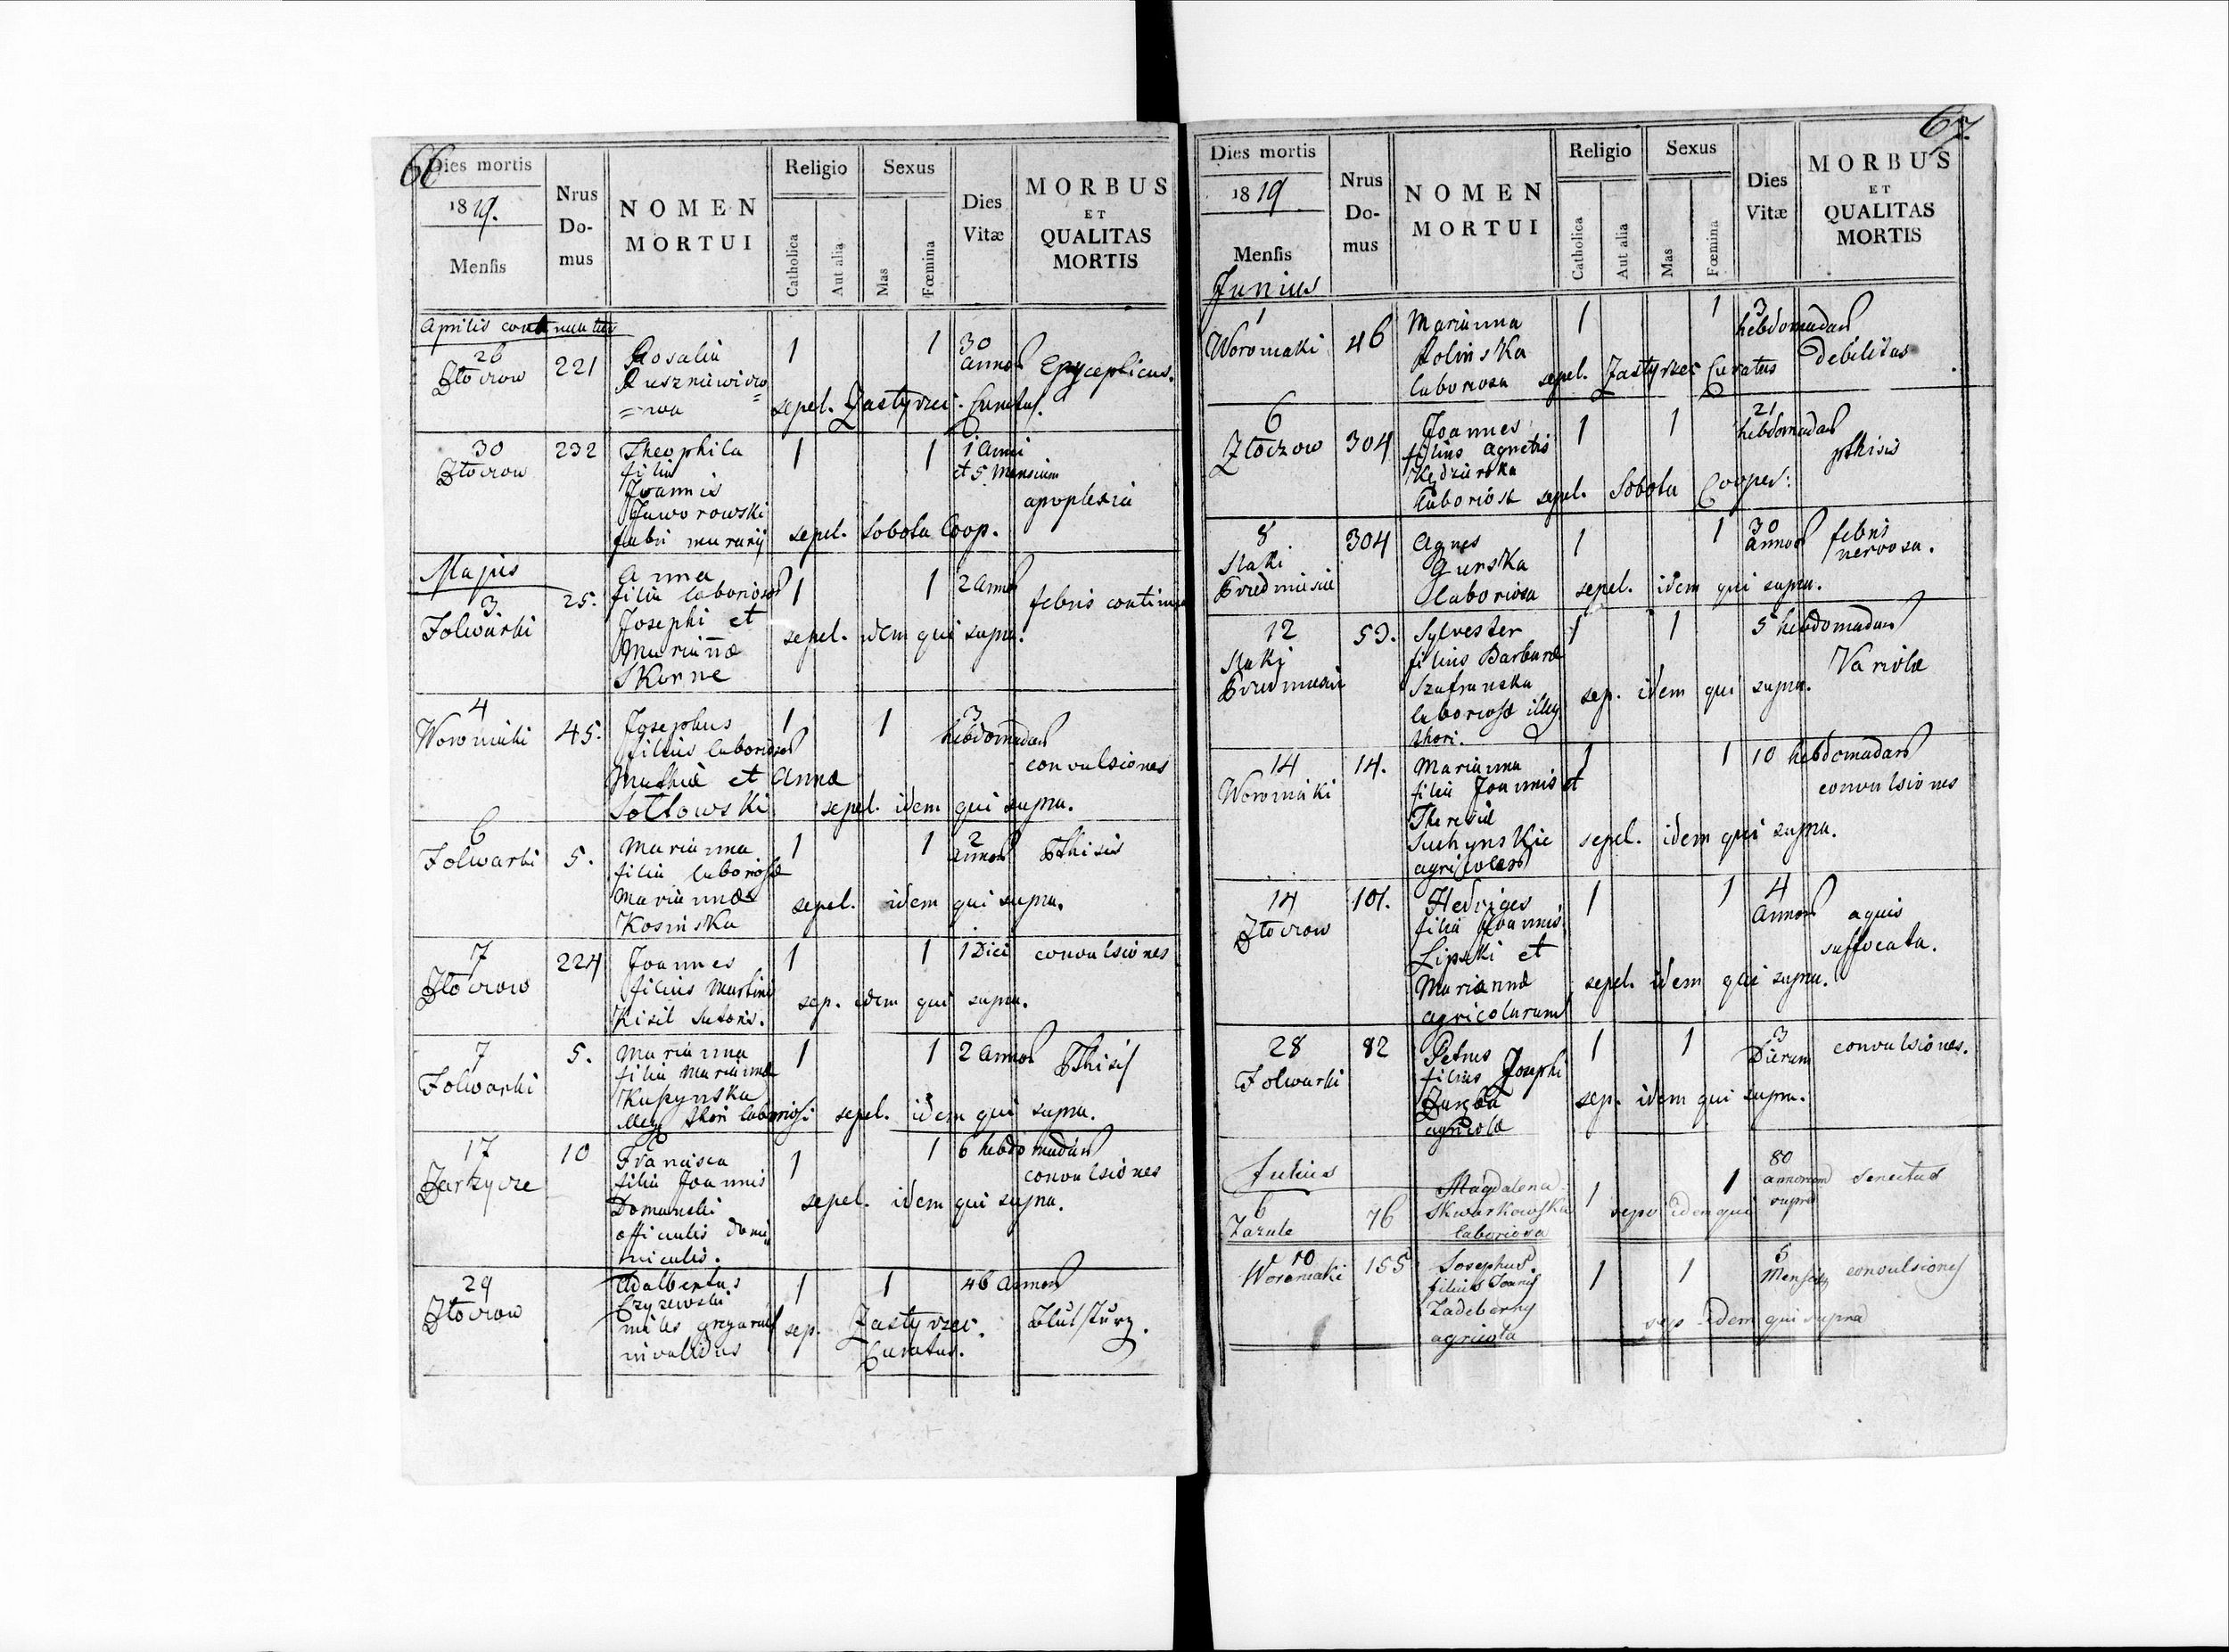 66
Dies mortis
1819.
Mensis
Nrus
Do-
mus
NOMEN
MORTUI
Religio
Catholica
Aut alia
Sexus
Mas
Fœmina
Dies
Vitæ
MORBUS
ET
QUALITAS
MORTIS
Aprilis continuatur
26
Złoczow
221
Rosalia
1
1
30
annor
sepel. Zastyrzec. Curatus.
30
Złoczow
232
Theophila
filia
Joannis
Jaworowski
fabri murarij
1
1
1 Anni
et 5 Mensium
apoplexia
sepel. Sobota Coop.
Majus
3.
Folwarki
25.
Anna
filia laborios
Josephi et
Mariañæ
Skorne
1
1
2 annor
febris continua
sepel. idem qui supra.
4
Woroniaki
45.
Josephus
filius laborios
Mathiæ et Annæ
Sottowski
1
1
3
hebdomadar
convulsiones
sepel. idem qui supra.
6
Folwarki
5.
Marianna
filia laboriosæ
Mariannæ
Kosinska
1
1
2
annor
Pthisis
sepel. idem qui supra.
7
Złoczow
224
Joannes
filius Martini
Kisil Sutoris.
1
1
1 Diei
convulsiones
sep. idem qui supra.
7
Folwarki
5.
Marianna
filia Mariannæ
Kupynska
illeg thori laboriosi
1
1
2 annor
Pthisis
sepel. idem qui supra.
17
Zarzycze
10
Francisca
filia Joannis
Domanski
officialis domi
nicalis.
1
1
6 hebdomadar
convulsiones
sepel. idem qui supra.
29
Złoczow
Adalbertus
Czyzewski
miles gregarius
invalidus
1
1
46 annor
Blutsturz.
sep. Zastyrzec.
Curatus.
67
Dies mortis
1819
Mensis
Junius
Nrus
Do-
mus
NOMEN
MORTUI
Religio
Catholica
Aut alia
Sexus
Mas
Fœmina
Dies
Vitæ
MORBUS
ET
QUALITAS
MORTIS
1
Woroniaki
46
Marianna
Rolinska
laboriosa
1
1
3
hebdomadar
Debilitas
sepel. Zastyrzec Curatus
6
Złoczow
304
Joannes
filius Agnetis
Kędzierska
laboriosæ
1
1
21
hebdomadar
pthisis
sepel. Sobota Cooper:
8
304
Agnes
Gurska
laboriosa
1
1
30
annor
febris
nervosa.
sepel. idem qui supra.
12
53.
Sylvester
filius Barbaræ
Szafranska
laboriosæ illeg
thori.
1
1
5 hebdomadar
Variolæ
sep. idem qui supra.
14
Woroniaki
14.
Marianna
filia Joannis et
Theresiæ
Suchynskie
agricolar
1
1
10 hebdomadar
convulsiones
sepel. idem qui supra.
14
Złoczow
101.
Hedviges
filia Joannis
Lipski et
Mariannæ
agricolarum
1
1
4
annor
aquis
suffocata.
sepel. idem qui supra.
28
Folwarki
82
Petrus
filius Josephi
agricolæ
1
1
3
Dierum
convulsiones.
sep. idem qui supra.
Julius
6
Zazule
76
Magdalena
Skwarkowska
laboriosa
1
1
80
annorum
supra
senectus
idem qui
10
Woroniaki
155
Josephus
filius Joanis
Zadeberny
agricola
1
1
5
convulsiones
sep idem qui supra